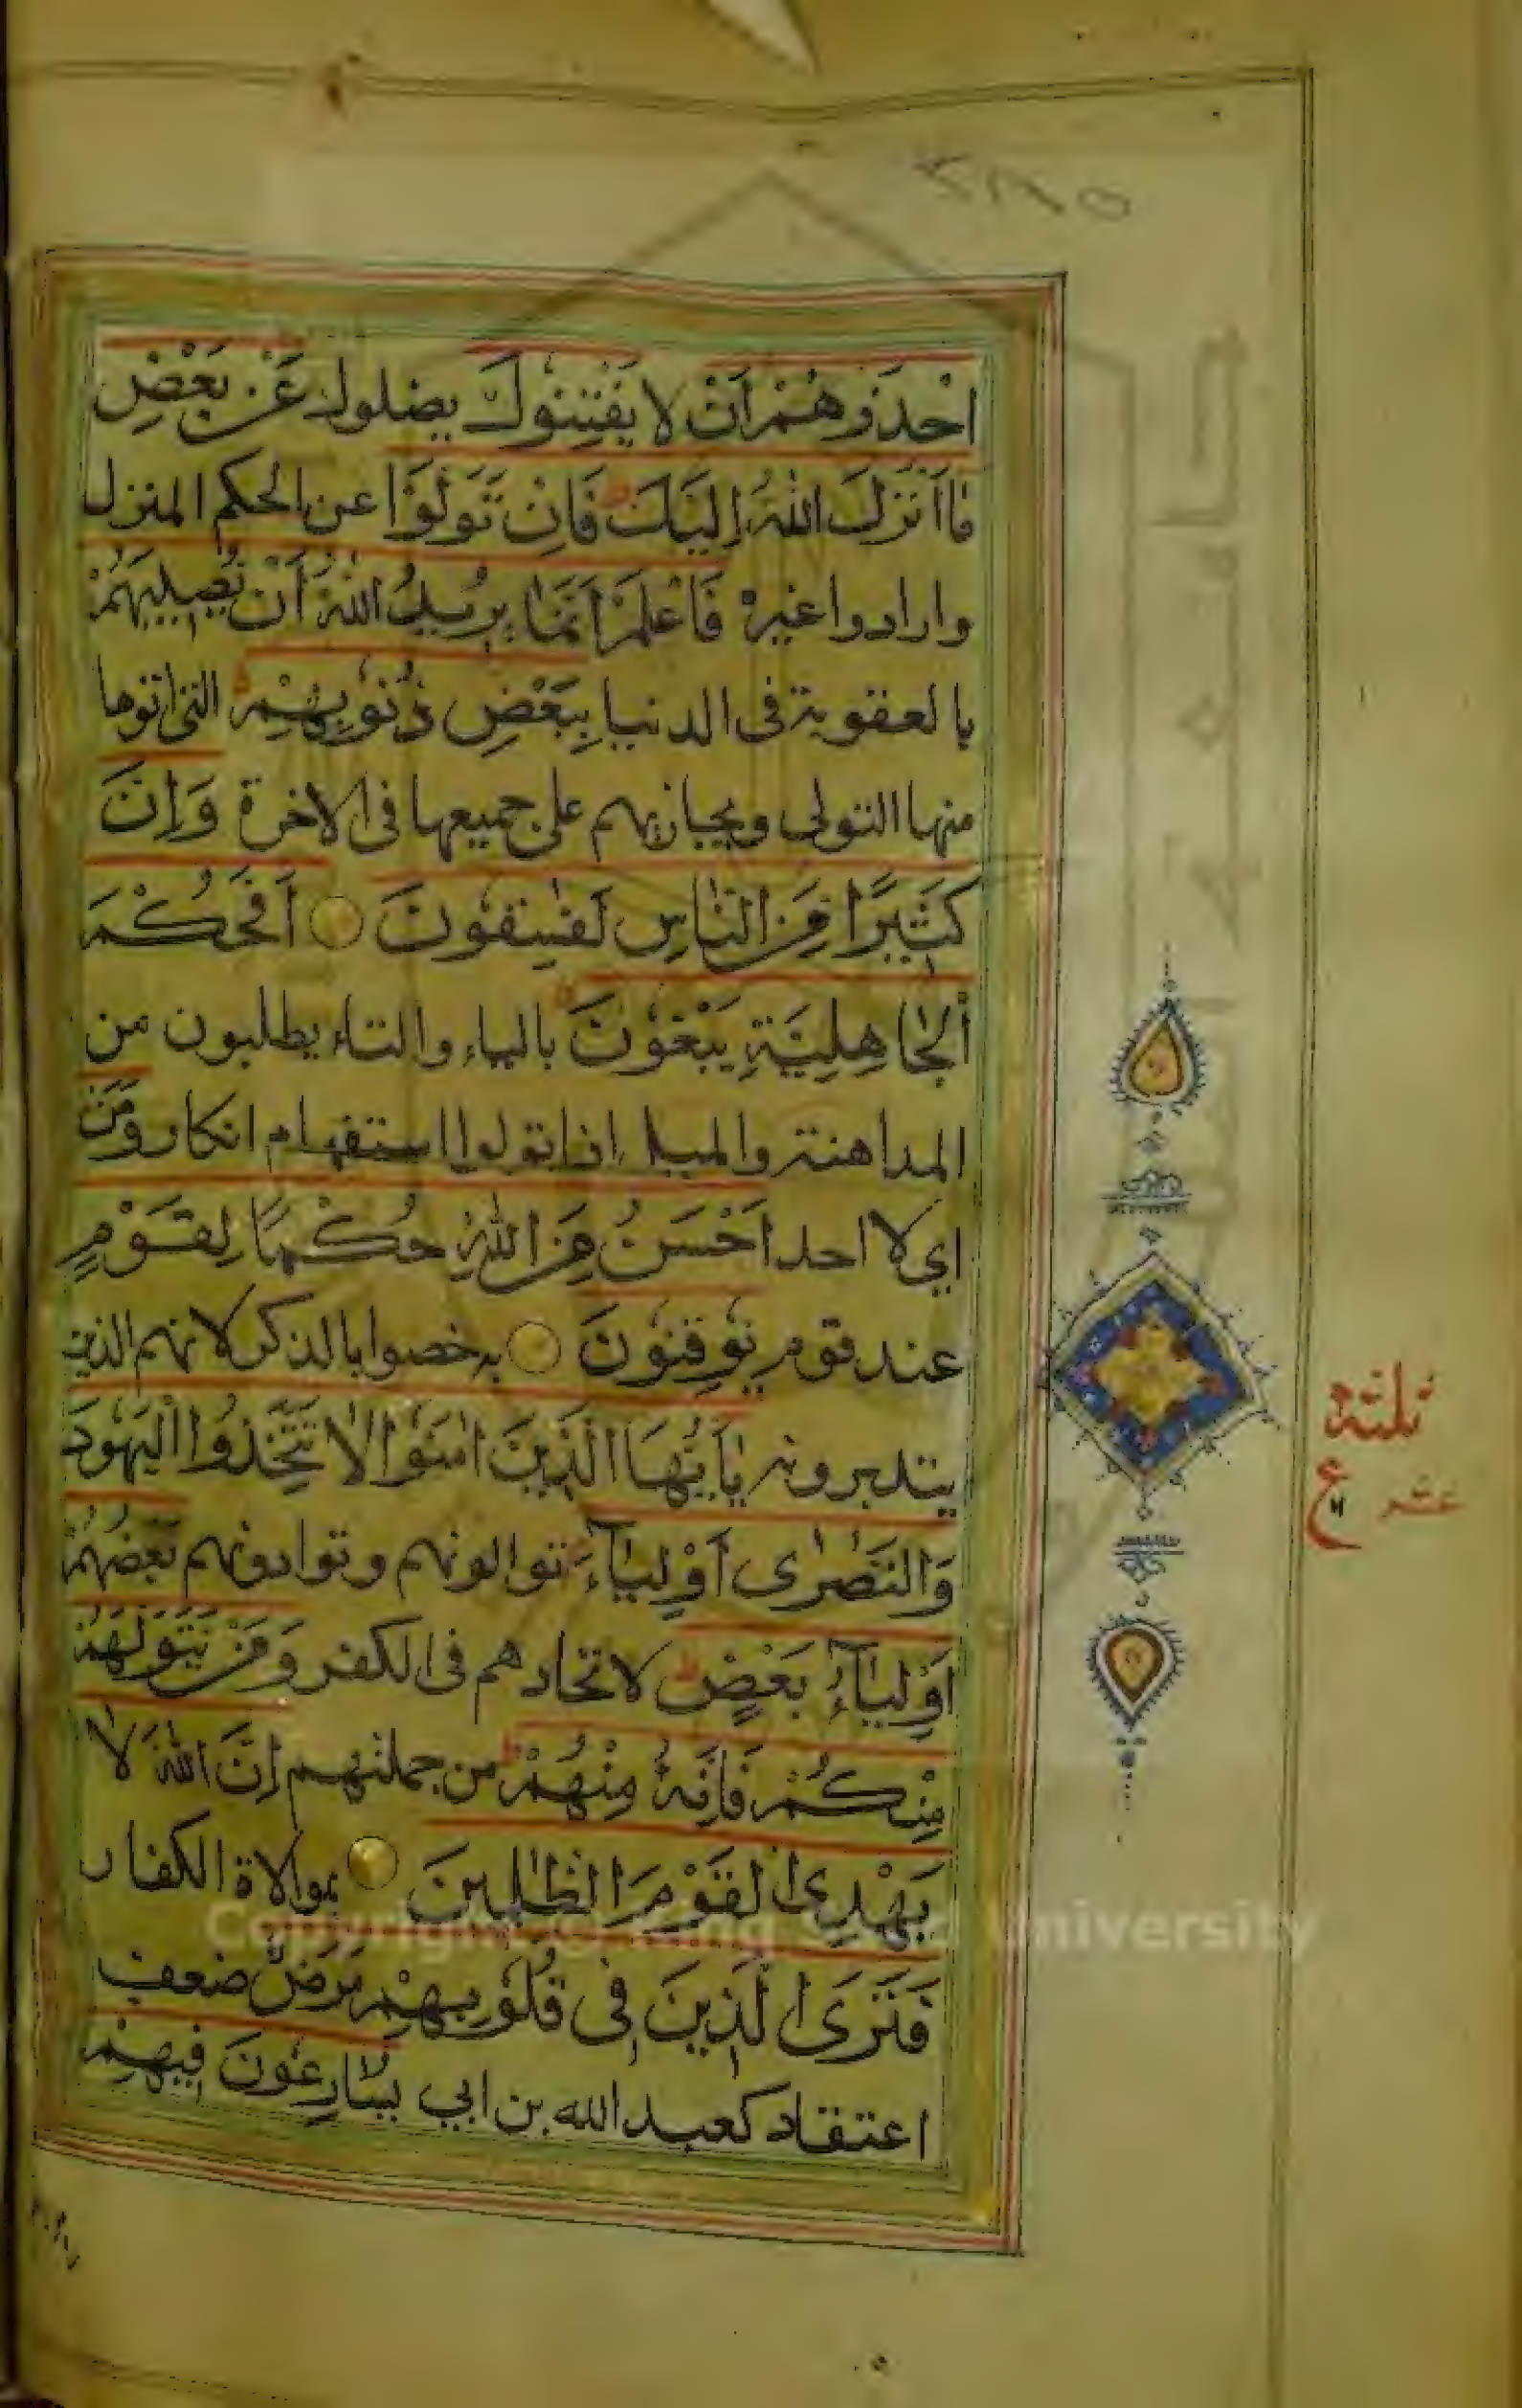 ٢١٧٥
احْذَرْهُمْ اَنْ لا يَفْتِنُوْكَ يضلوك عَنْ بَعْضِ
مَا اَنْزَلَ اللّٰهُ اِلَيْكَ فَاِنْ تَوَلَّوْا عن الحكم المنزل
وارادوا غيره فَاعْلَمْ اَنَّمَا يُرِيدُ اللّٰهُ اَنْ يُصِيبَهُمْ
بالعقوبة فى الدنيا بِبَعْضِ ذُنُوبِهِمْ التى اتوها
منها التولى ويجازيهم على جميعها فى الاخرة وَاِنَّ
كَثِيرًا مِنَ النَّاسِ لَفٰسِقُونَ اَفَحُكْمَ
الْجَاهِلِيَّةِ يَبْغُوْنَ بالياء والتاء يطلبون من
المداهنة والميل اذا تولوا استفهام انكار وَمَنْ
اي لا احد اَحْسَنُ مِنَ اللّٰهِ حُكْمًا لِقَوْمٍ
عند قوم يُوقِنُوْنَ به خصوا بالذكر لانهم الذين
يتدبرونه يٰاَيُّهَا الَّذِينَ اٰمَنُوْا لَا تَتَّخِذُوا الْيَهُوْدَ
وَالنَّصٰرٰى اَوْلِيَآءَ توالونهم وتوادونهم بَعْضُهُمْ
اَوْلِيَآءُ بَعْضٍ لاتحادهم فى الكفر وَمَنْ يَتَوَلَّهُمْ
مِنْكُمْ فَاِنَّهُ مِنْهُمْ من جملتهم اِنَّ اللّٰهَ لَا
يَهْدِى الْقَوْمَ الظّٰلِمِينَ بموالاة الكفار
فَتَرَى الَّذِينَ فِى قُلُوْبِهِمْ مَرَضٌ ضعف
اعتقاد كعبد الله بن ابي يُسَارِعُوْنَ فِيهِمْ
ثلثة
عشر
ع
Copyright © King Saud University